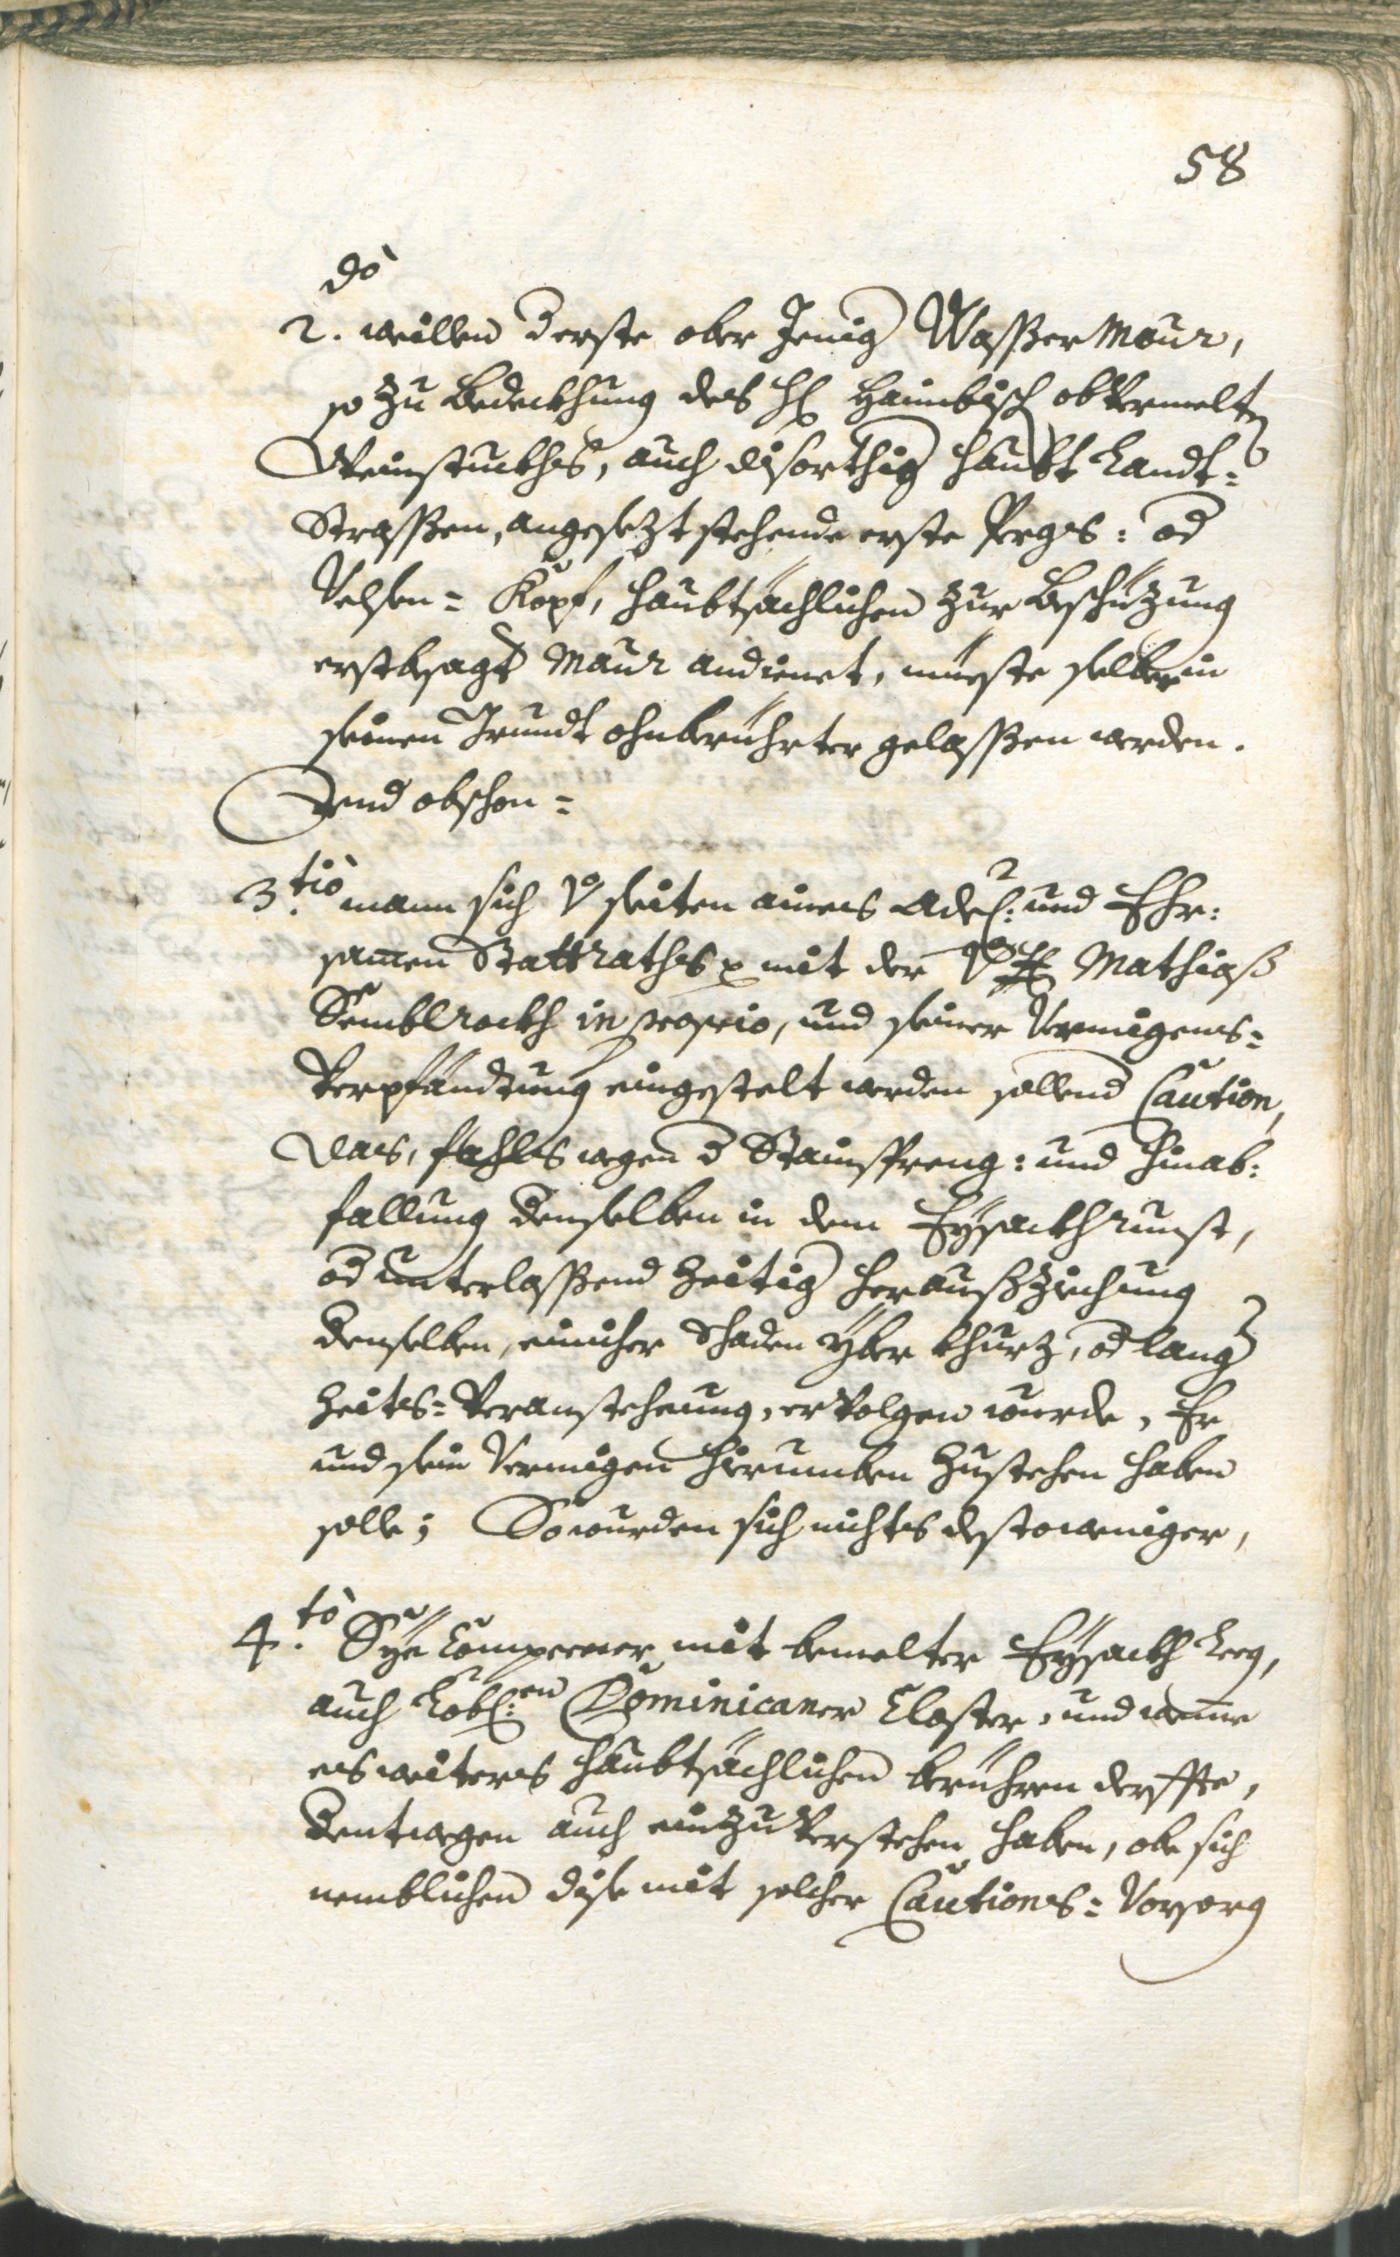 58
do
2. weillen d erste ober Jenig Wasser Maur,
so zu bedeckhung des H: Haimbisch obvermelten
Weinstuckhs, auch disorthig haubt Landt=
Strassen, angesezt stehende erste Pergs: od
Velsen= Kopf, haubtsächlichen zur beschüzung
erstbesagt Maur andienet, müeste selber in
seinen Grundt ohnberührter gelassen werden.
Und obschon=
3.tiò mann sich von seiten aines Adel: und Ehr:
samen Stattraths mit der von H: Mathiaß
Semblrockh in proprio, und seiner Vermigens=
Verpfändtung eingestelt werden sollend Caution,
das, fahls wegen d Stainspreng: und hinab:
fallung denselben in dem Eysackh runst,
od unterlassend zeitig heraußziehung
denselben, einicher Schaden yber khurz, od lang
Zeits= Veranstehung, ervolgen wurde, Er
und sein Vermigen hierumben zustehen haben
solle; So wurden sich nichts destoweniger,
4.tò Sye Comparirer mit bemelter Eysackh Leeg,
auch Löbl:en Dominicaner Closter, und wenne
es weiters haubtsächlichen berühren derffte,
dentwegen auch einzuverstehen haben, obe sich
nemblichen dise mit solcher Cautions= Vorsorg